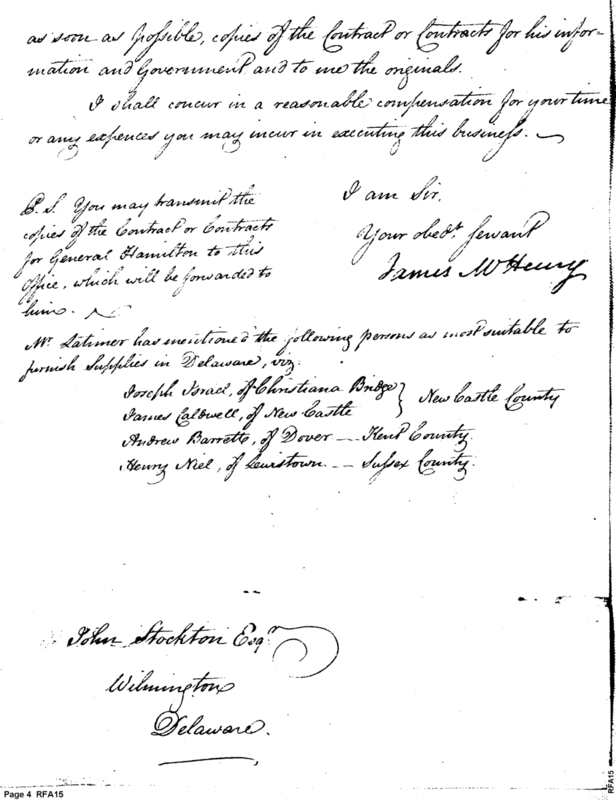 as soon as possible, copies of the Contract or Contracts for his infor-
mation and Government and to me the originals.
I shall concur in a reasonable compensation for your time
or any expences you may incur in executing this business.
I am Sir,
Your obedt. Servant
James McHenry
P.S. You may transmit the
copies of the Contract or Contracts
for General Hamilton to this
Office, which will be forwarded to
him.
Mr. Latimer has mentioned the following persons as most suitable to
furnish Supplies in Delaware, viz.
Joseph Israel, of Christiana Bridge } New Castle County
James Caldwell, of New Castle
Andrew Barrett, of Dover -- Kent County.
Henry Niel, of Lewistown. -- Sussex County.
John Stockton Esqr.
Wilmington
Delaware.
Page 4 RFA15
RFA15